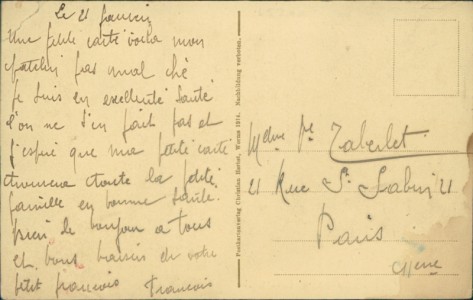 Le 21 Janvier
Une petite carte voila mon
patelin pas mal ché
je suis en excellente santé
l'on ne s'en fait pas et
j'espère que ma petite carte
trouvera toute la petite
famille en bonne santé.
bien le bonjour a tous
et bons baisers de votre
petit francois Francois
Postkartenverlag Christian Herbst, Worms 1914. Nachbildung verboten.
Taberlet
21 Rue St Sabin 21
Paris
11eme